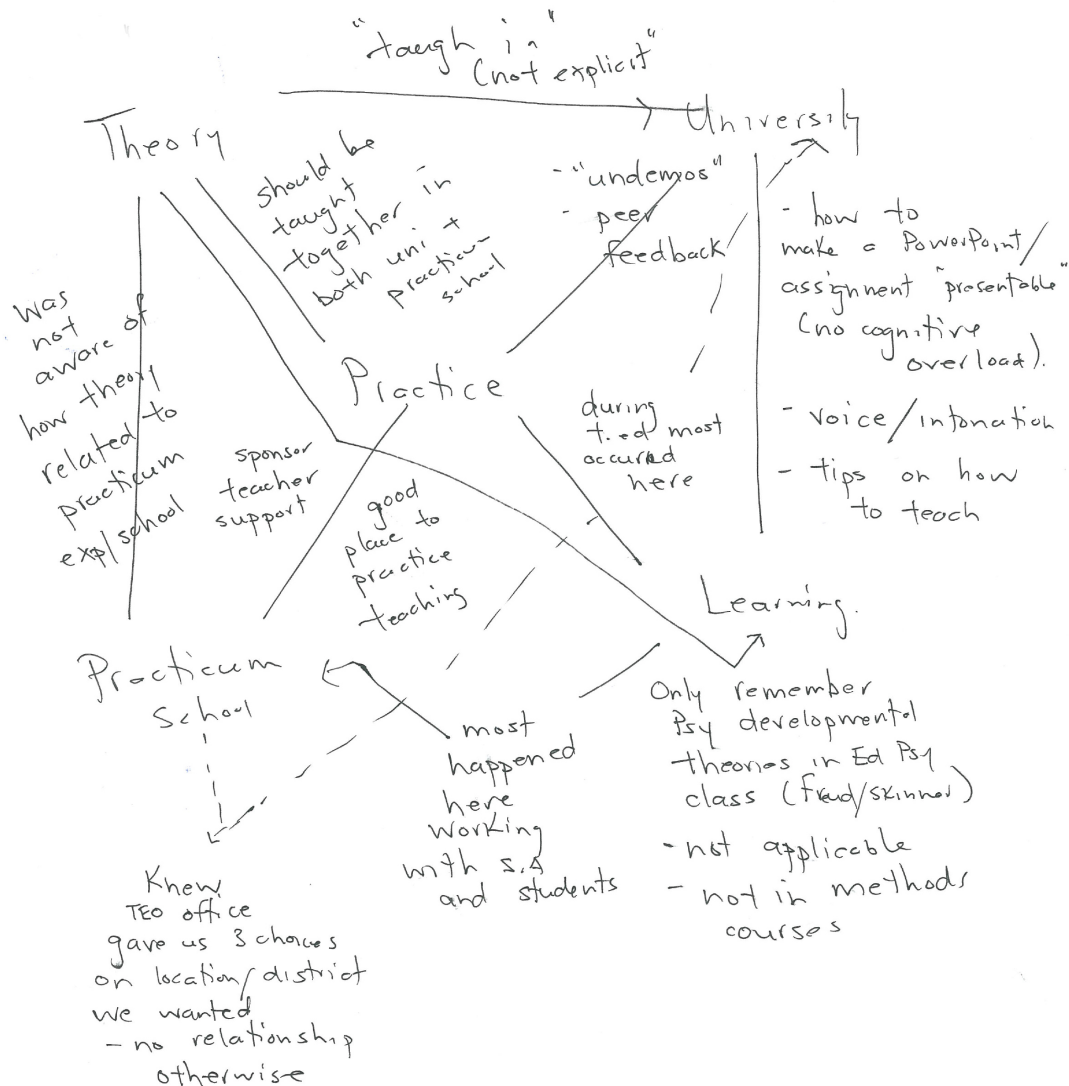 "taugh in"
(not explicit"
Theory
University
should be
taught
together in
both uni +
practicum
school
- "undemos"
- peer
feedback
- how to
make a PowerPoint/
assignment "presentable"
(no cognitive
overload).
- voice/intonation
- tips on how
to teach
was
not
aware of
how theory
related to
practicum
exp/school
Practice
sponsor
teacher
support
good
place to
practice
teaching
during
t.ed most
occured
here
Learning.
Practicum
School
most
happened
here
working
with S.A
and students
Only remember
Psy developmental
theories in Ed Psy
class (Freud/skinner)
- not applicable
- not in methods
courses
Knew
TEO office
gave us 3 choices
on location/district
we wanted
- no relationship
otherwise